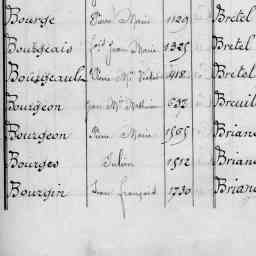 Bourge Pierre Marie 1129 Bretel
Bourgeais Jean Marie 1325 Bretel
Bourgeault Pierre Me Victor 918 Bretel
Bourgeon Jean Me Mathurin 633 Breuil
Bourgeon Pierre Marie 1595 Brian
Bourges Julien 1512 Brian
Bourgin Jean François 1730 Brian